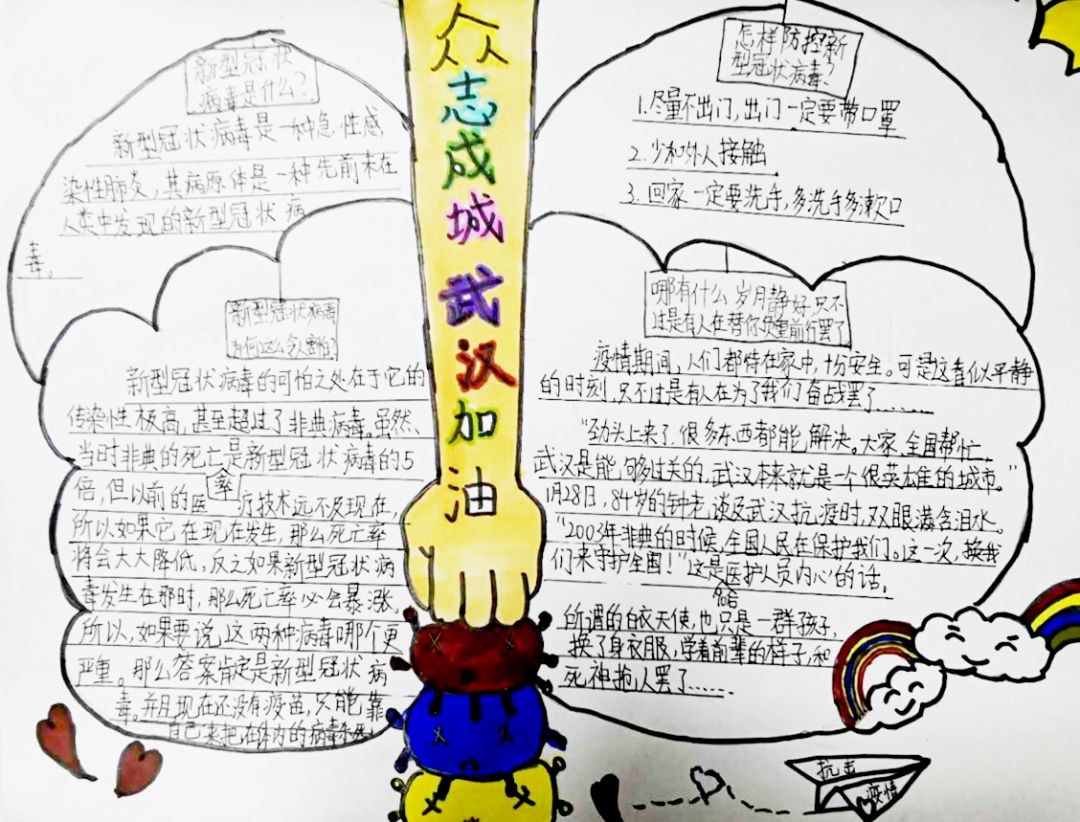 众志成城武汉加油
新型冠状
病毒是什么？
新型冠状病毒是一种急性感
染性肺炎，其病原体是一种先前未在
人类中发现的新型冠状病
毒。
新型冠状病毒
为何这么令人害怕？
新型冠状病毒的可怕之处在于它的
传染性极高，甚至超过了非典病毒。虽然、
当时非典的死亡率是新型冠状病毒的5
倍，但以前的医疗技术远不及现在，
所以如果它在现在发生，那么死亡率
将会大大降低。反之如果新型冠状病
毒发生在那时，那么死亡率必会暴涨，
所以，如果要说这两种病毒哪个更
严重。那么答案肯定是新型冠状病
毒。并且现在还没有疫苗，只能靠
自己来把在体内的病毒
怎样防控新
型冠状病毒？
1.尽量不出门，出门一定要带口罩
2.少和外人接触
3.回家一定要洗手，多洗手多漱口
哪有什么岁月静好，只不
过是有人在替你负重前行罢了
疫情期间，人们都待在家中，十分安全。可是这看似平静
的时刻，只不过是有人在为了我们奋战罢了……
“劲头上来了，很多东西都能解决。大家、全国帮忙，
武汉是能够过关的，武汉本来就是一个很英雄的城市。”
1月28日，84岁的钟老谈及武汉抗疫时，双眼满含泪水。
“2003年非典的时候，全国人民在保护我们。这一次，换我
们来守护全国！”这是90后医护人员内心的话。
所谓的白衣天使，也只是一群孩子，
换了身衣服，学着前辈的样子，和
死神抢人罢了……
抗击
疫情